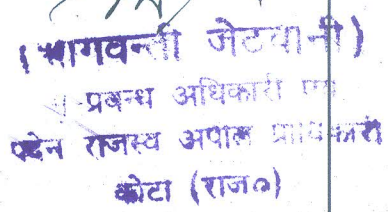 (भागवन्ती जेटवानी)
भू-प्रबन्ध अधिकारी एवं
पदेन राजस्व अपील प्राधिकारी
कोटा (राज०)